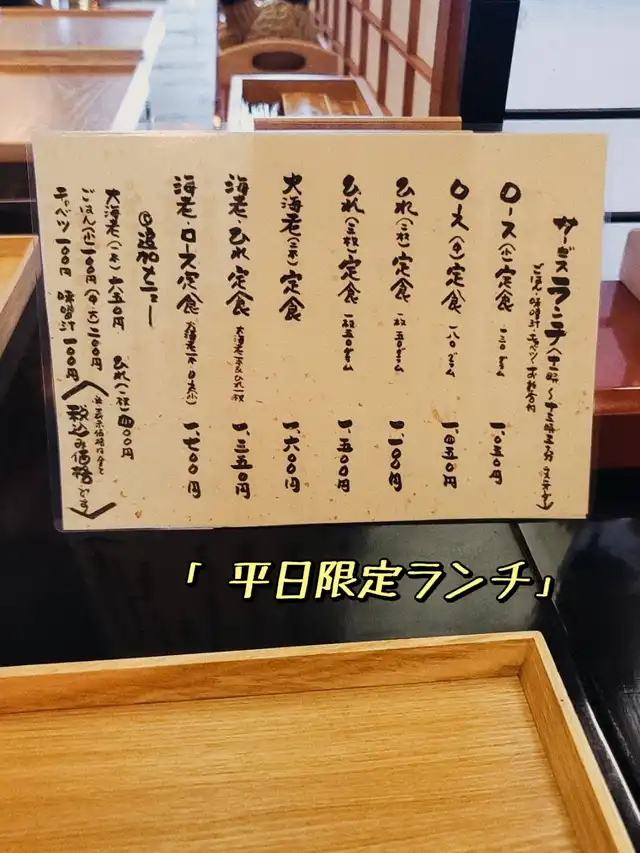 サービスランチ(十一時～十三時三十分
ごはん・味噌汁・キャベツ・お新香付
ロース(小)定食 一三〇グラム 一、〇五〇円
ロース(中)定食 一八〇グラム 一、四五〇円
ひれ(二枚)定食 一枚五〇グラム 一、一〇〇円
ひれ(三枚)定食 一枚五〇グラム 一、五〇〇円
大海老(二本)定食 一、六〇〇円
海老・ひれ定食 大海老一本&ひれ一枚 一、三五〇円
海老・ロース定食 大海老一本・ロース小 一、七〇〇円
◎追加メニュー
大海老(一本)六五〇円 ひれ(一枚)四〇〇円
ごはん(小)一〇〇円(中・大)二〇〇円
キャベツ一〇〇円 味噌汁一〇〇円
※表示価格は全て
税込み価格です
「平日限定ランチ」